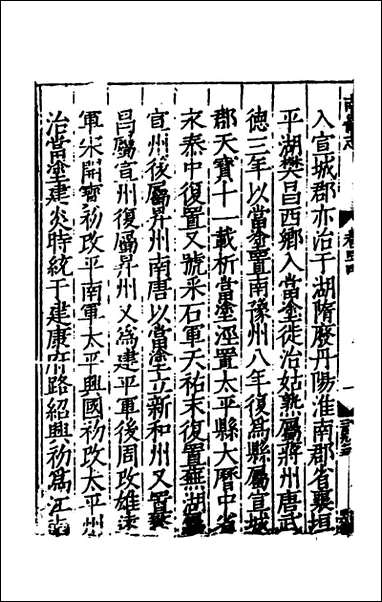 入宣城郡亦治于湖隋廢丹陽淮南郡省襄垣
平湖樊昌西鄉入當塗徙治姑熟屬蔣州唐武
德三年以當塗置南豫州八年復為縣屬宣城
郡天寶十一載析當塗涇置太平縣大曆中省
永泰中復置又號采石軍天祐末復置蕪湖
宣州後屬昇州南唐以當塗立新和州又置蘩
昌屬宣州復屬昇州又為建平軍後周改雄遠
軍宋開寶初改平南軍太平興國初改太平州
治當塗建炎時統于建康府路紹興初為江